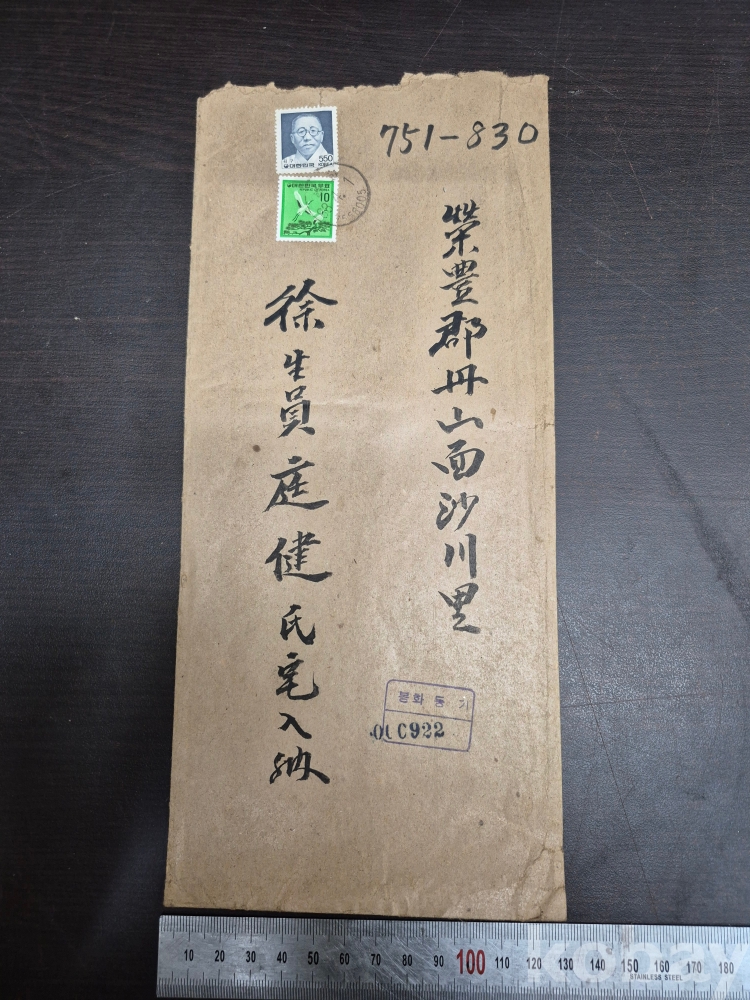 751-830
榮豊郡丹山面沙川里
徐生員庭健氏宅入納
대한민국
550
대한민국우표
10
봉화 등기
C922
10 20 30 40 50 60 70 80 90 100 110 120 130 140 150 160 170 180
STAINLESS STEEL
kobay